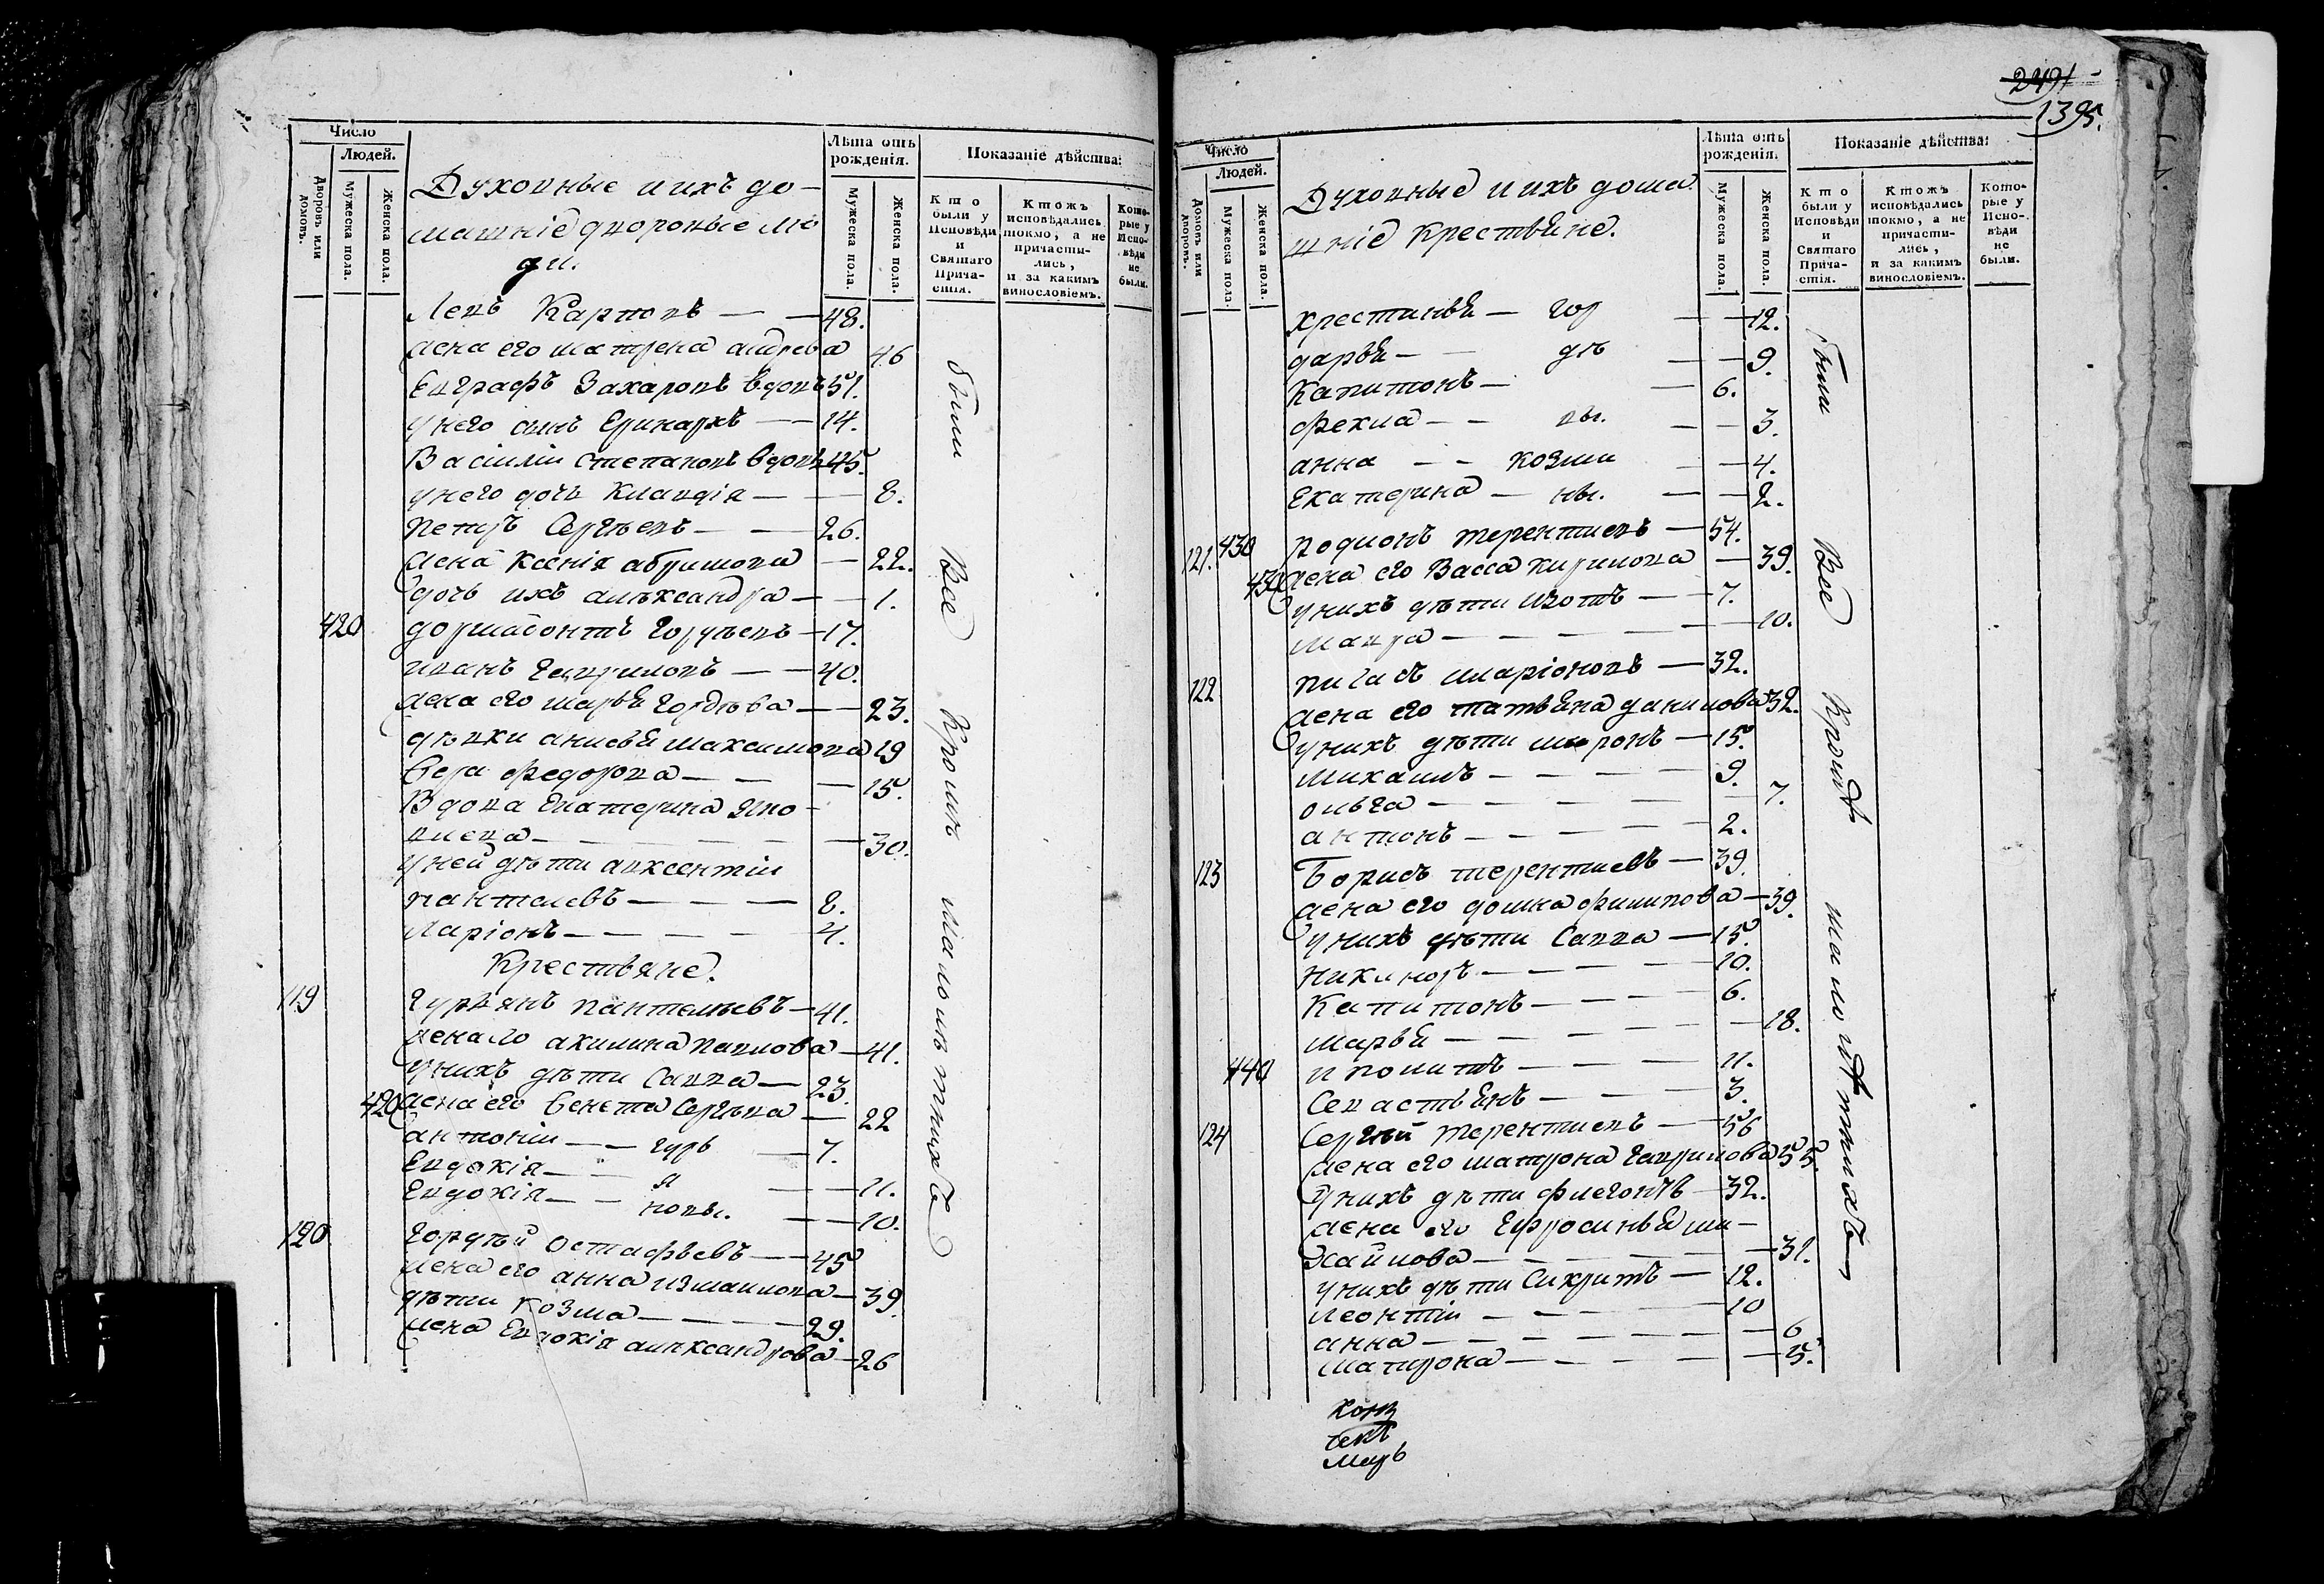 Число
Людей.
Дворовъ или домовъ.
Мужеска пола.
Женска пола.
Духовные и ихъ до-
машніе дворовые лю
ди.
Лѣта отъ рожденія.
Мужеска пола.
Женска пола.
Показаніе дѣйства:
Кто были у Исповѣди и Святаго Прича-стія.
Ктожъ исповѣдались токмо, а не причасти-лись, и за какимъ винословіемъ.
Кото-рые у Испо-вѣди не были.
Левъ Карповъ — — 48.
жена его матрена 46
Евграфъ Захаровъ вдовъ 51.
у него сынъ Еринархъ — — 14.
Василіи степановъ вдовъ 45.
у него дочь Клавдія — — 8.
петръ Сергѣевъ — — 26.
жена Ксенія абрамова — 22.
дочь ихъ александра — — 1.
420 дормидонтъ гордѣевъ — 17.
иванъ гавриловъ — — 40.
жена его марья гордѣева — — 23.
дѣвки анисья максимова 19
вера федорова — — — 15.
Вдова Екатерина яко-
влева — — — — — 30.
у ней дѣти авксентіи
пантелевъ — — — 8.
Ларіонъ — — — — 4.
Крестьяне.
119 гурьянъ пантелѣевъ — 41.
жена его акилина павлова — 41.
у нихъ дѣти Савва — 23.
420 жена его Сергѣева — 22
антоніи — — гурь — 7.
Евдокія — — я — — 11.
Евдокія — — новы. — — 10.
120 гордѣй остафьевъ — — 45
жена его анна измаилова — 39
дѣти козма — — — — 29.
жена Евдокія александрова — 26
были Все Кромѣ малолѣтныхъ
2491
1395.
Число
Людей.
Домовъ или дворовъ.
Мужеска пола.
Женска пола.
Духовные и ихъ дома
шніе крестьяне.
Лѣта отъ рожденія.
Мужеска пола.
Женска пола.
Показаніе дѣйства:
Кто были у Исповѣди и Святаго Прича-стія.
Ктожъ исповѣдались токмо, а не причасти-лись, и за какимъ винословіемъ.
Кото-рые у Испо-вѣди не были.
хрестинья — гор — — 12.
дарья — — дѣ — — 9.
Капитонъ — — 6.
фекла — — вы. — — 3.
анна — — козми — — 4.
Екатерина — ны. — — 2.
121. 430 родионъ терентиевъ — 54.
430 жена его Васса кирилова — 39.
у нихъ дѣти изотъ — — 7.
мавра — — — — — — 10.
122 пигасъ иларіоновъ — 32.
жена его татьяна данилова 32.
у нихъ дѣти миронъ — 15.
михаилъ — — — — 9.
ольга — — — — — 7.
антонъ — — — — 2.
123 Борисъ терентиевъ — 39.
жена его домна филипова — 39.
у нихъ дѣти Савва — 15.
никаноръ — — — — 10.
Капитонъ — — — — 6.
марья — — — — — 18.
440 иполитъ — — — 11.
Севастьянъ — — — 3.
124 Сергѣй терентиевъ — 56
жена его матрона гаврилова 55
у нихъ дѣти флегонтъ — 32.
жена его Ефросинья ми-
хайлова — — — — — — 31.
у нихъ дѣти — 12.
леонтіи — — — — 10
анна — — — — — — — 6
матрона — — — — — — 5.
были Все Кромѣ малолѣтныхъ